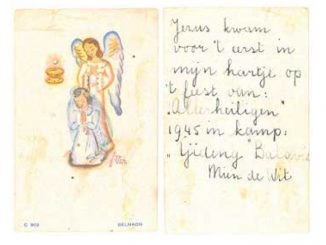 C 902
BELNAGO
Jezus kwam
voor 't eerst in
mijn hartje op
't feest van:
"Allerheiligen"
1945 in kamp:
"Tjideng" Batavia
Mien de Wit